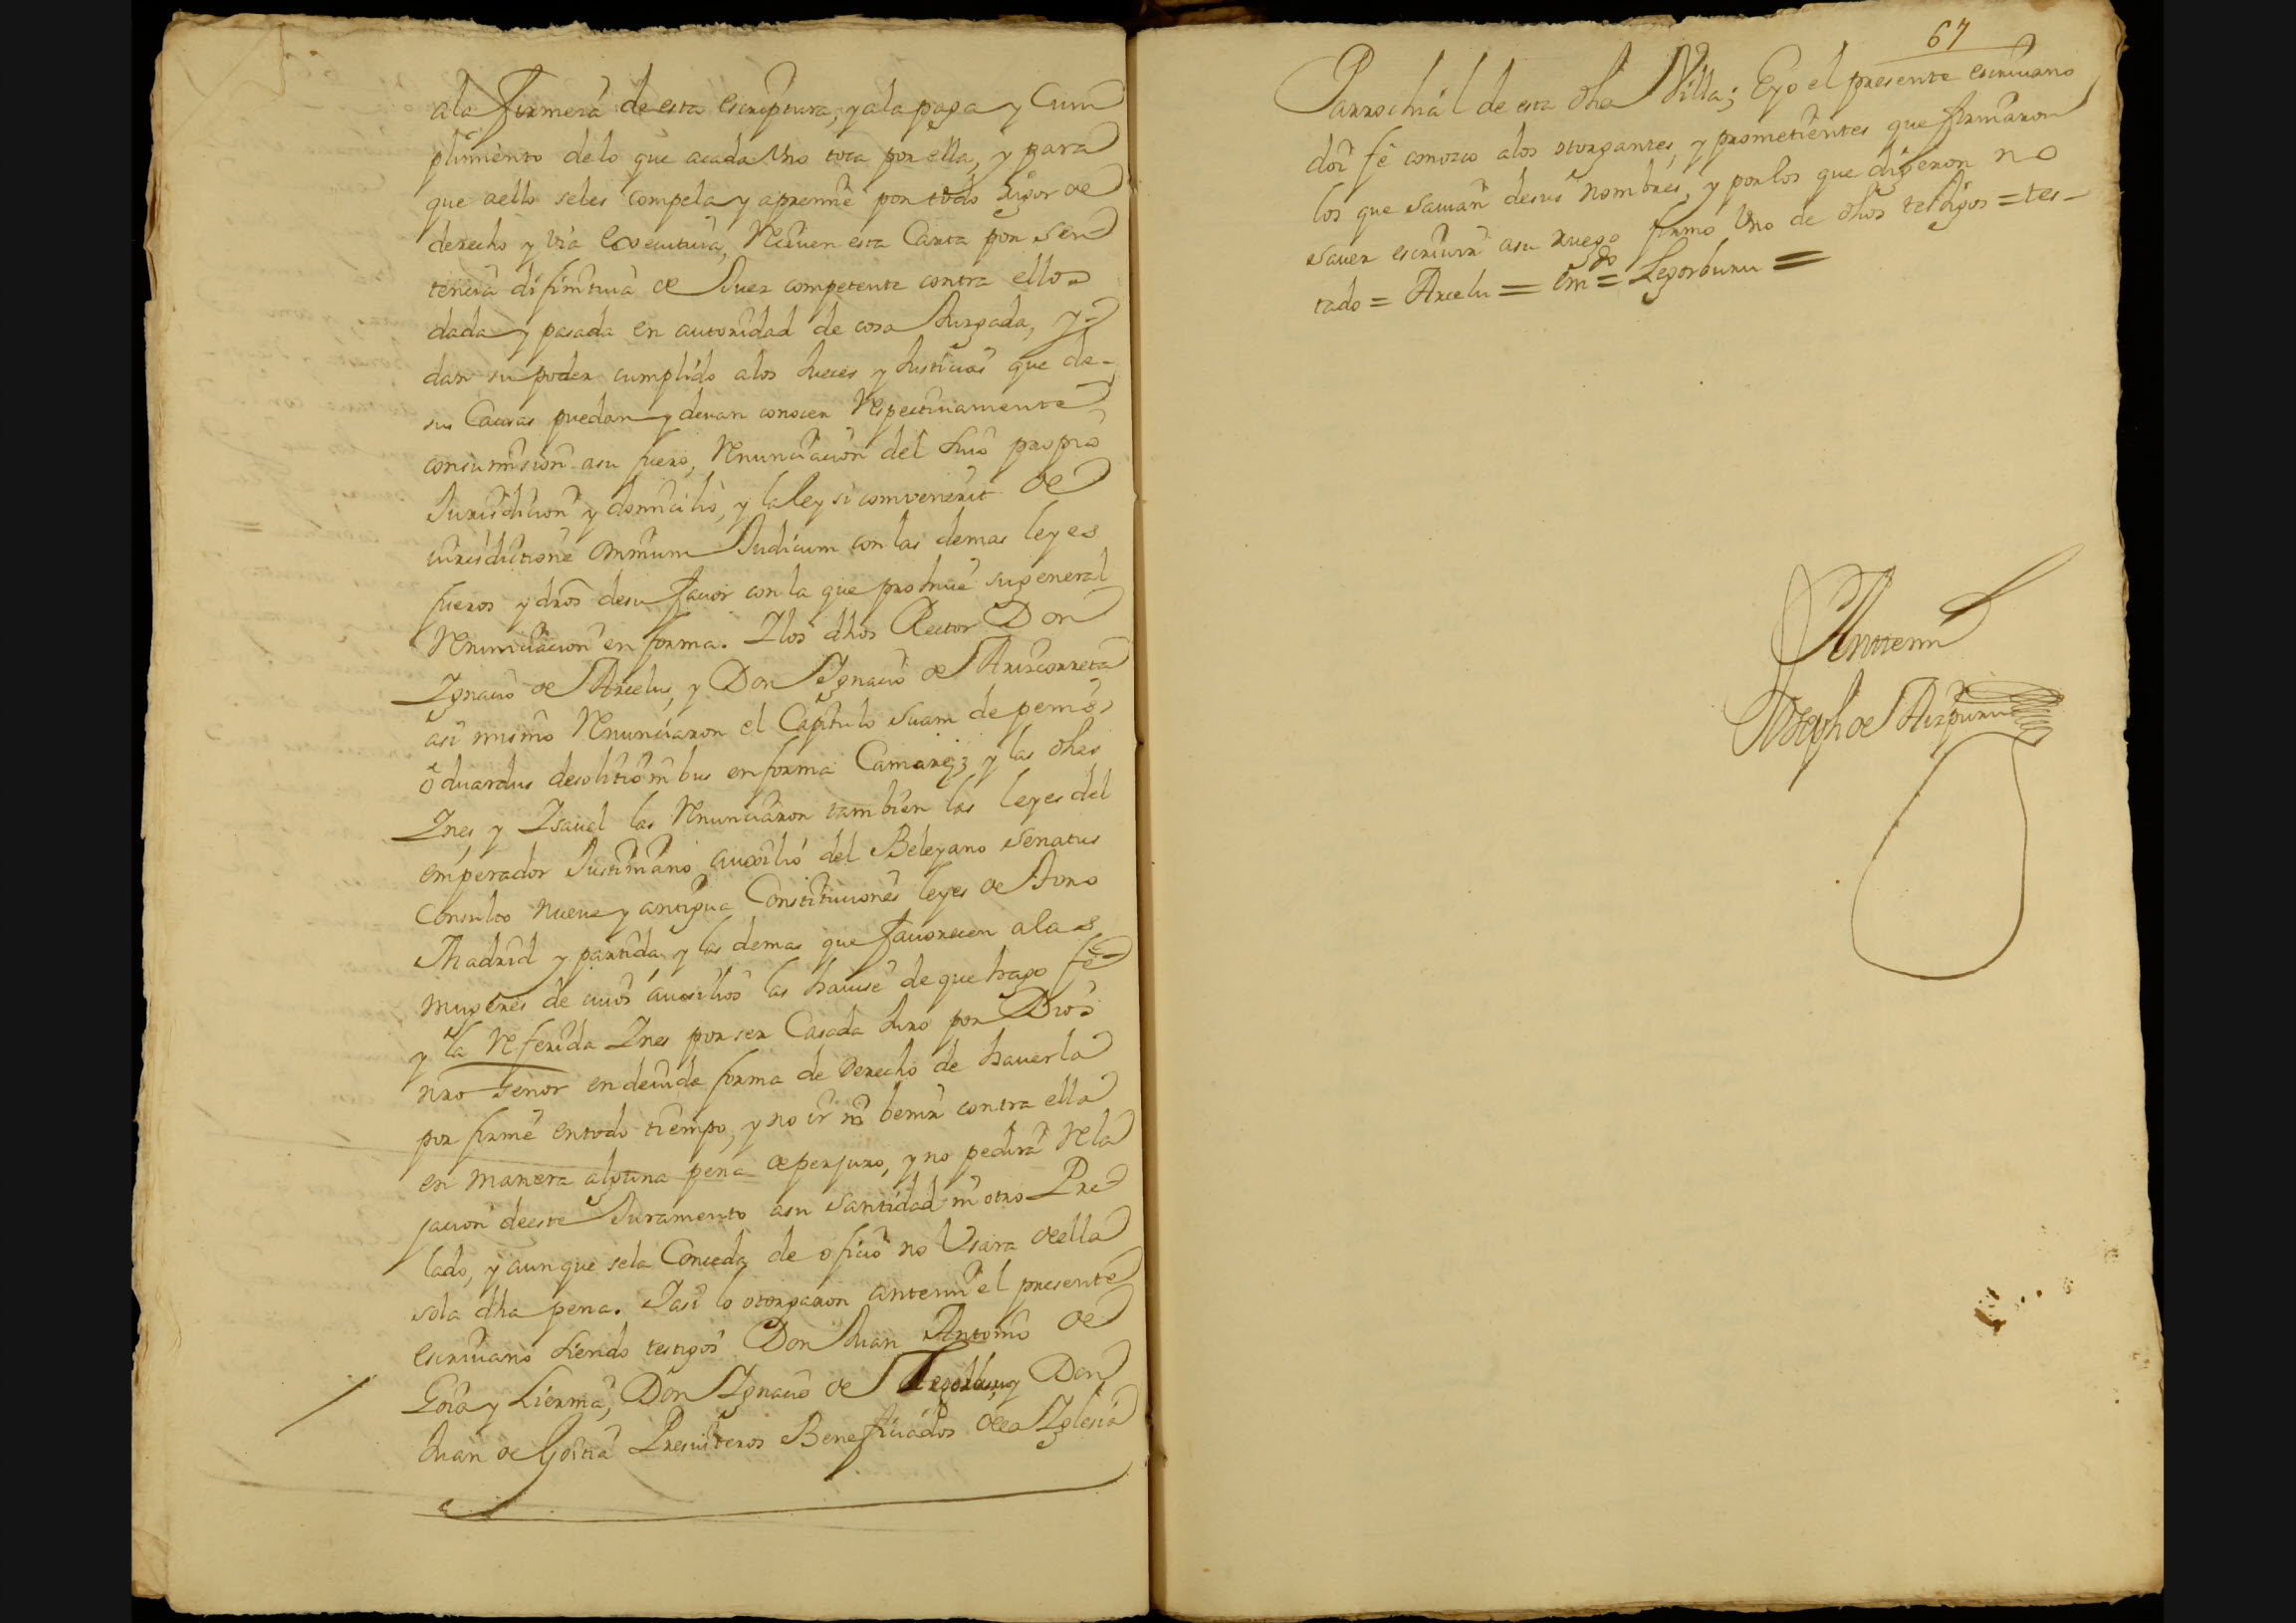 ala firmeza de esta escriptura, y ala paga y Cum
plimiento delo que acada Vno toca por ella, y para
que aello seles compela y apremie por todo rigor de
derecho y via executiua, Reciuen esta Carta por sen
tencia difinitiua de Juez competente contra ellos
dada y pasada en autoridad de cosa Juzgada, y
dan su poder cumplido alos Jueces y Justicias que de
sus Causas puedan y deuan conocer Respectiuamente
consumision asu fuero, Renunciacion del suio propio
Jurisdicion y domicilio, y la ley si convenerit de
iurisdictione omnium Judicum con las demas leyes
fueros y dros desu fauor con la que prohiue su general
Renunciacion en forma. Ylos dhos Rector Don
Ygnacio de Arcelus, y Don Ygnacio de Arizcorreta
asi mismo Renunciaron el Capitulo suam de penis
oduardus desolutionibus en forma Camarę; y las dhas
Ynes y Ysauel las Renunciaron tambien las leyes del
emperador Justiniano auxilio del Beleyano senatus
Consulto nueua y antigua Constituciones leyes de Toro
Madrid y partida y las demas que fauorecen alas
mugeres de cuios auxilios las hauise de que hago fe
y la Referida Ynes por ser Casada Juro por Dios
nro señor en deuida forma de derecho de hauerla
por firme entodo tiempo, y no ir ni benir contra ella
en manera alguna pena de perjuro, y no pedira Rela
jacion deeste Juramento asu santidad ni otro Pre
lado, y aunque sela Conceda de oficio no Vsara de ella
sola dha pena. Yasi lo otorgaron antemi el presente
escriuano siendo testigos Don Juan Antonio de
Goia y Lierma, Don Ygnacio de Legorburu y Don
Juan de Goitia Presuiteros Beneficiados dela Yglesia
67
Parrochial de esta dha Villa; Eyo el presente escriuano
doi fe conozco alos otorgantes, y prometientes que firmaron
los que sauian desus nombres, y por los que digeron no
sauer escriuir asu ruego firmo Vno de dhos testigos = tes-
tado = Arcelu = em<sup>do</sup> = Legorburu =
Antemi
Joseph de Aizpuru